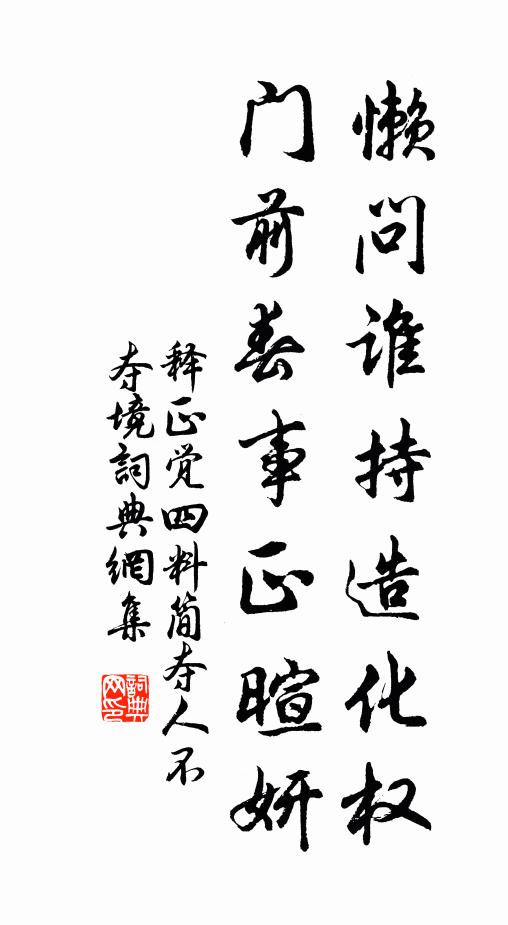 懒问谁持造化权
门前春事正暄妍
释正觉四料简夺人不
夺境詞典網集
詞典网印